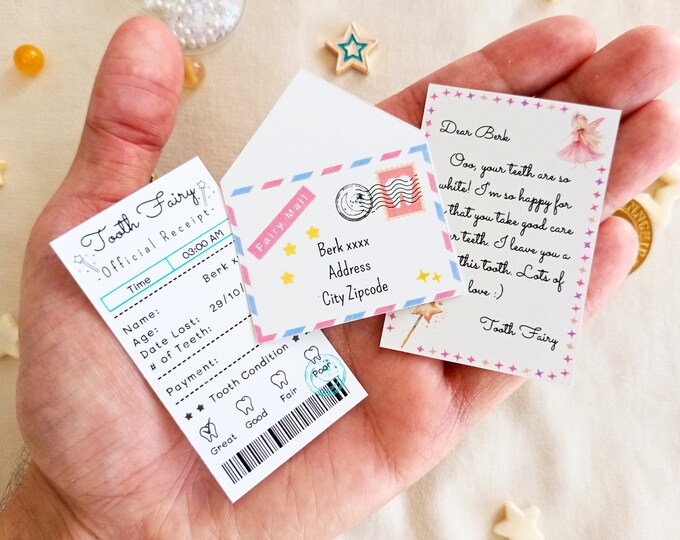 Tooth Fairy
Official Receipt
Time 03:00 AM
Name: Berk x
Age:
Date Lost: 29/10/
# of Teeth:
Payment:
Tooth Condition
Great Good Fair Poor
Fairy Mail
Berk xxxx
Address
City Zipcode
Dear Berk
Ooo, your teeth are so
white! I'm so happy for
that you take good care
r teeth. I leave you a
this tooth. Lots of
love :)
Tooth Fairy